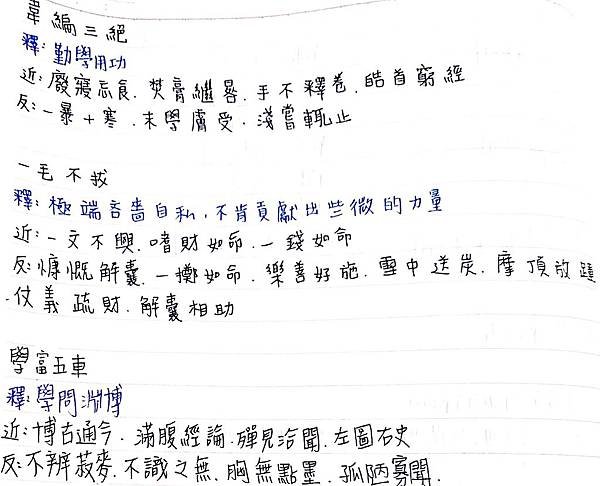 韋編三絕
釋:勤學用功
近:廢寢忘食.焚膏繼晷.手不釋卷.皓首窮經
反:一暴十寒.末學膚受.淺嘗輒止
一毛不拔
釋:極端吝嗇自私,不肯貢獻出些微的力量
近:一文不興.嗜財如命.一錢如命
反:慷慨解囊.一擲如命.樂善好施.雪中送炭.摩頂放踵
.仗義疏財.解囊相助
學富五車
釋:學問淵博
近:博古通今.滿腹經論.殫見洽聞.左圖右史
反:不辨菽麥.不識之無.胸無點墨.孤陋寡聞.